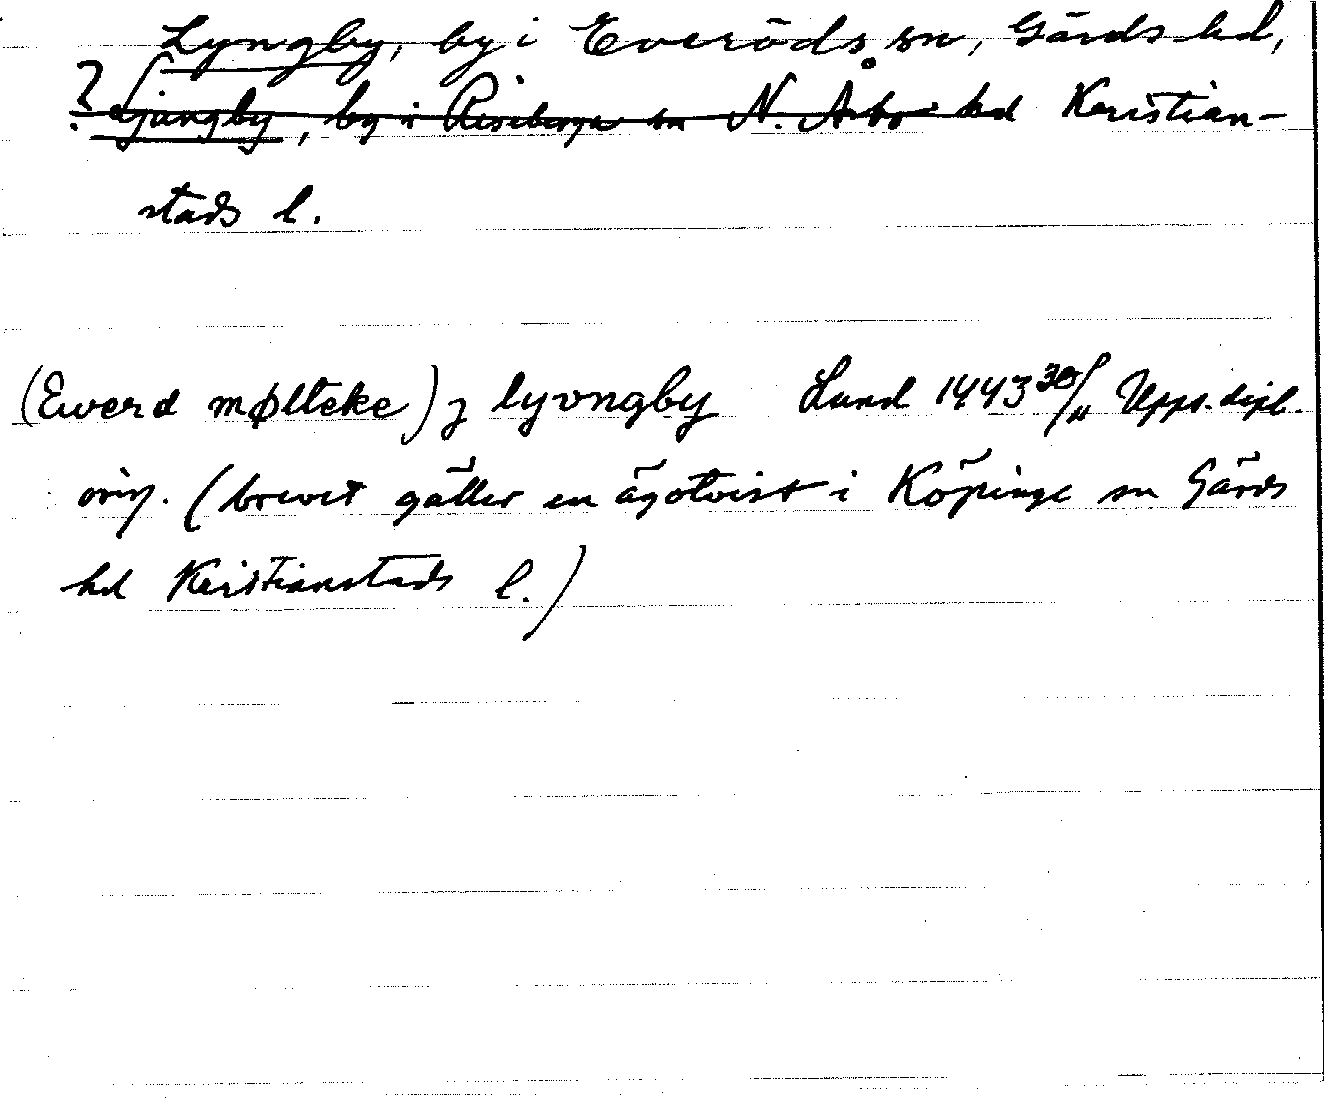 Lyngby, by i Everöds sn, Gärds hd,
? Ljungby, by i Riseberga sn N. Åsbo hd Kristian-
stads l.
(Ewerd mølteke) j lyvngby Lund 1443 30/11 Upps. dipl.
orig. (brevet gäller en ägotvist i Köpinge sn Gärds
hd Kristianstads l.)